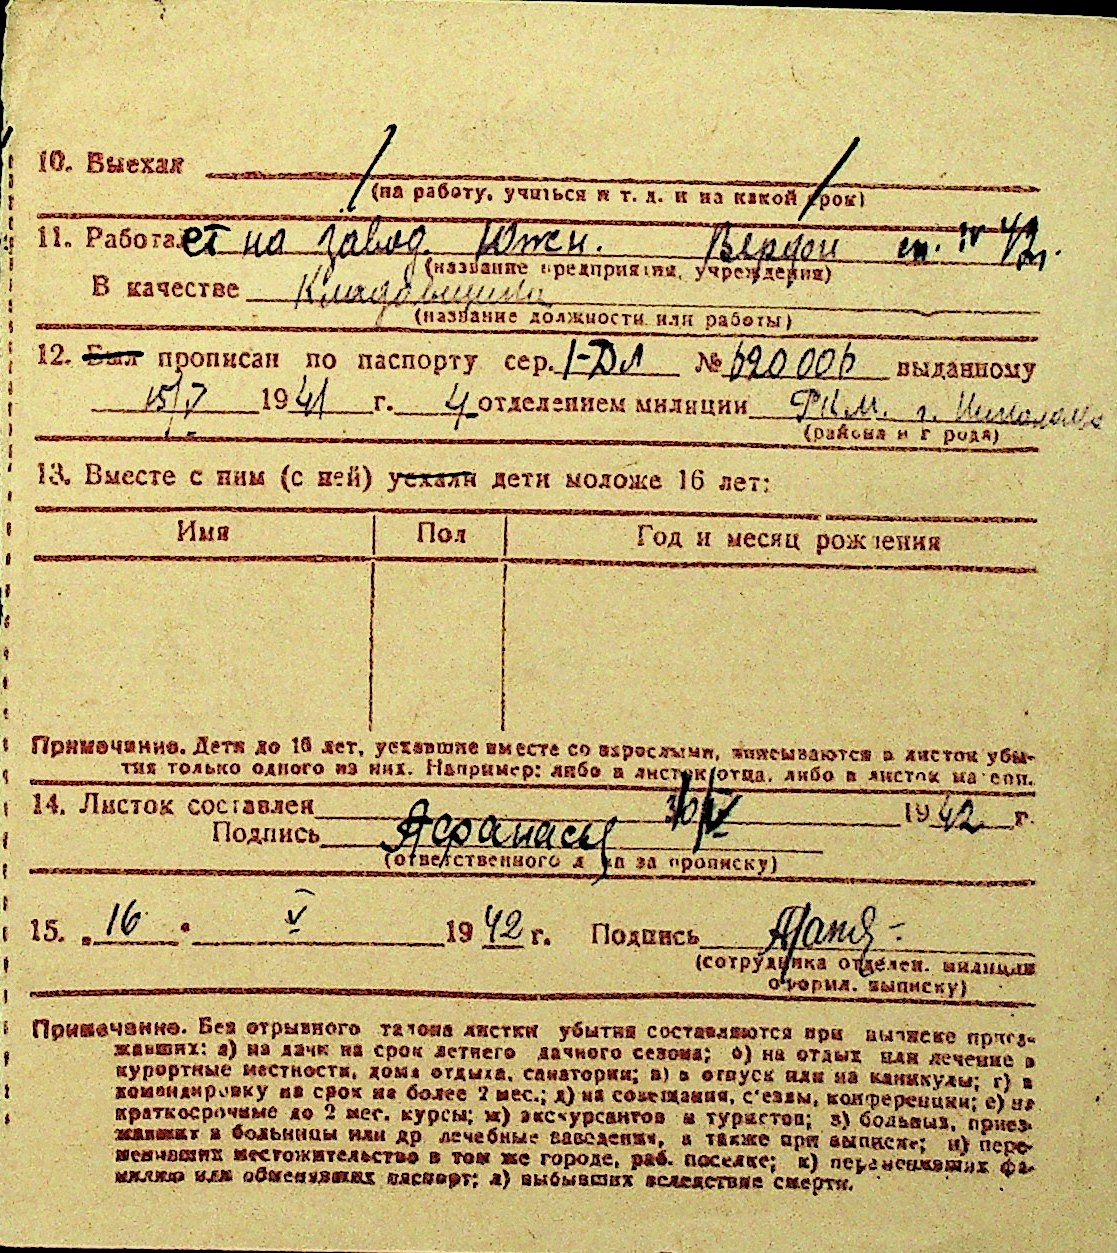 10. Выехал
(на работу, учиться и т. д. и на какой срок)
11. Работает на завод. Южн.
(название предприятия, учреждения)
В качестве Кладовщика
(название должности или работы)
12. Был прописан по паспорту сер. I-ДЛ № 620006 выданному
15/V 1941 г. 4 отделением милиции РКМ. г. Николаева
(района и города)
13. Вместе с ним (с ней) уехали дети моложе 16 лет:
Имя Пол Год и месяц рождения
Примечание. Дети до 16 лет, уехавшие вместе со взрослыми, вписываются в листок убы-
тия только одного из них. Например: либо в листок отца, либо в листок матери.
14. Листок составлен 1942 г.
Подпись
(ответственного лица за прописку)
15. „16 " V 1942 г. Подпись
(сотрудника отделен. милиции
оформл. выписку)
Примечание. Без отрывного талона листки убытия составляются при выписке приез-
жавших: а) на дачи на срок летнего дачного сезона; б) на отдых или лечение в
курортные местности, дома отдыха, санатории; в) в отпуск или на каникулы; г) в
командировку на срок не более 2 мес.; д) на совещания, с'езды, конференции; е) на
краткосрочные до 2 мес. курсы; ж) экскурсантов и туристов; з) больных, приез-
жавших в больницы или др лечебные заведения, а также при выписке; и) пере-
менивших местожительство в том же городе, раб. поселке; к) переменивших фа-
милию или обменявших паспорт; л) выбывших вследствие смерти.